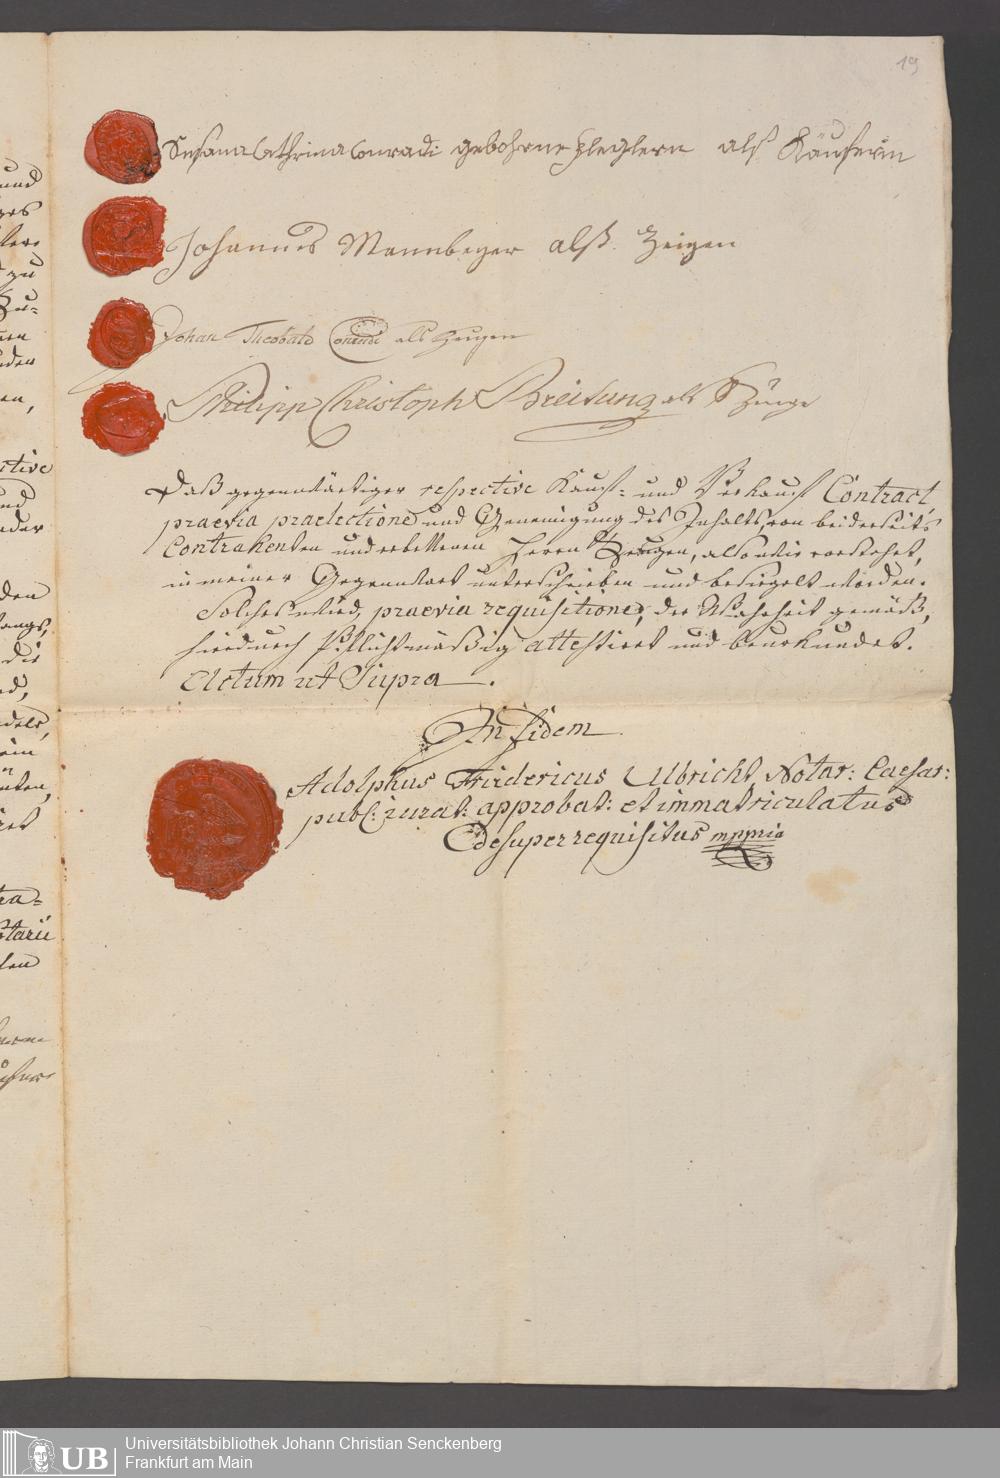 19
Susana Cathrina Conradi gebohrne Zieglern alß Käuferin
Johannes Mannbeger alß Zeigen
Johan Theobald Conradi als Zeugen
Philipp Christoph Breitung als Zeuge
Daß gegenwärtiger respective Kauf- und Verkauf Contract,
praevia praelectione und Genemigung des Inhalts, von beiderseits
Contrahenten und erbettenen Herrn Zeugen, also wie vorstehet,
in meiner Gegenwart unterschrieben und besiegelt worden.
Solches wird, praevia requisitione, der Wahrheit gemäß,
hierdurch Pflichtmäßig attestiret und beurkundet.
Actum ut Supra.
In fidem
Adolphus Fridericus Ulbricht Notar: Caesar:
publ: jurat: approbat: et immatriculatus
desuper requisitus mppria
und
zu
den
die
tarii
UB
Universitätsbibliothek Johann Christian Senckenberg
Frankfurt am Main